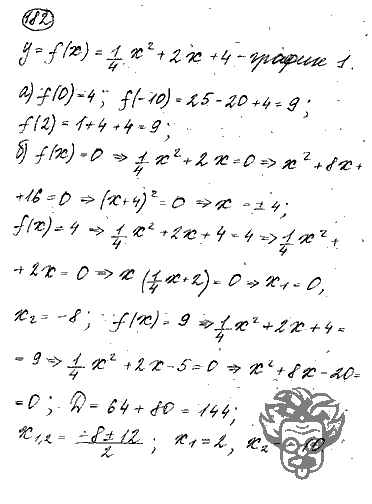 182
y = f(x) = 1/4 x² + 2x + 4 - график 1.
а) f(0) = 4; f(-10) = 25 - 20 + 4 = 9;
f(2) = 1 + 4 + 4 = 9;
б) f(x) = 0 ⇒ 1/4 x² + 2x = 0 ⇒ x² + 8x +
+ 16 = 0 ⇒ (x+4)² = 0 ⇒ x = ±4;
f(x) = 4 ⇒ 1/4 x² + 2x + 4 = 4 ⇒ 1/4 x² +
+ 2x = 0 ⇒ x (1/4 x + 2) = 0 ⇒ x₁ = 0,
x₂ = -8; f(x) = 9 ⇒ 1/4 x² + 2x + 4 =
= 9 ⇒ 1/4 x² + 2x - 5 = 0 ⇒ x² + 8x - 20 =
= 0; D = 64 + 80 = 144;
x₁,₂ = (-8 ± 12)/2; x₁ = 2, x₂ = -10